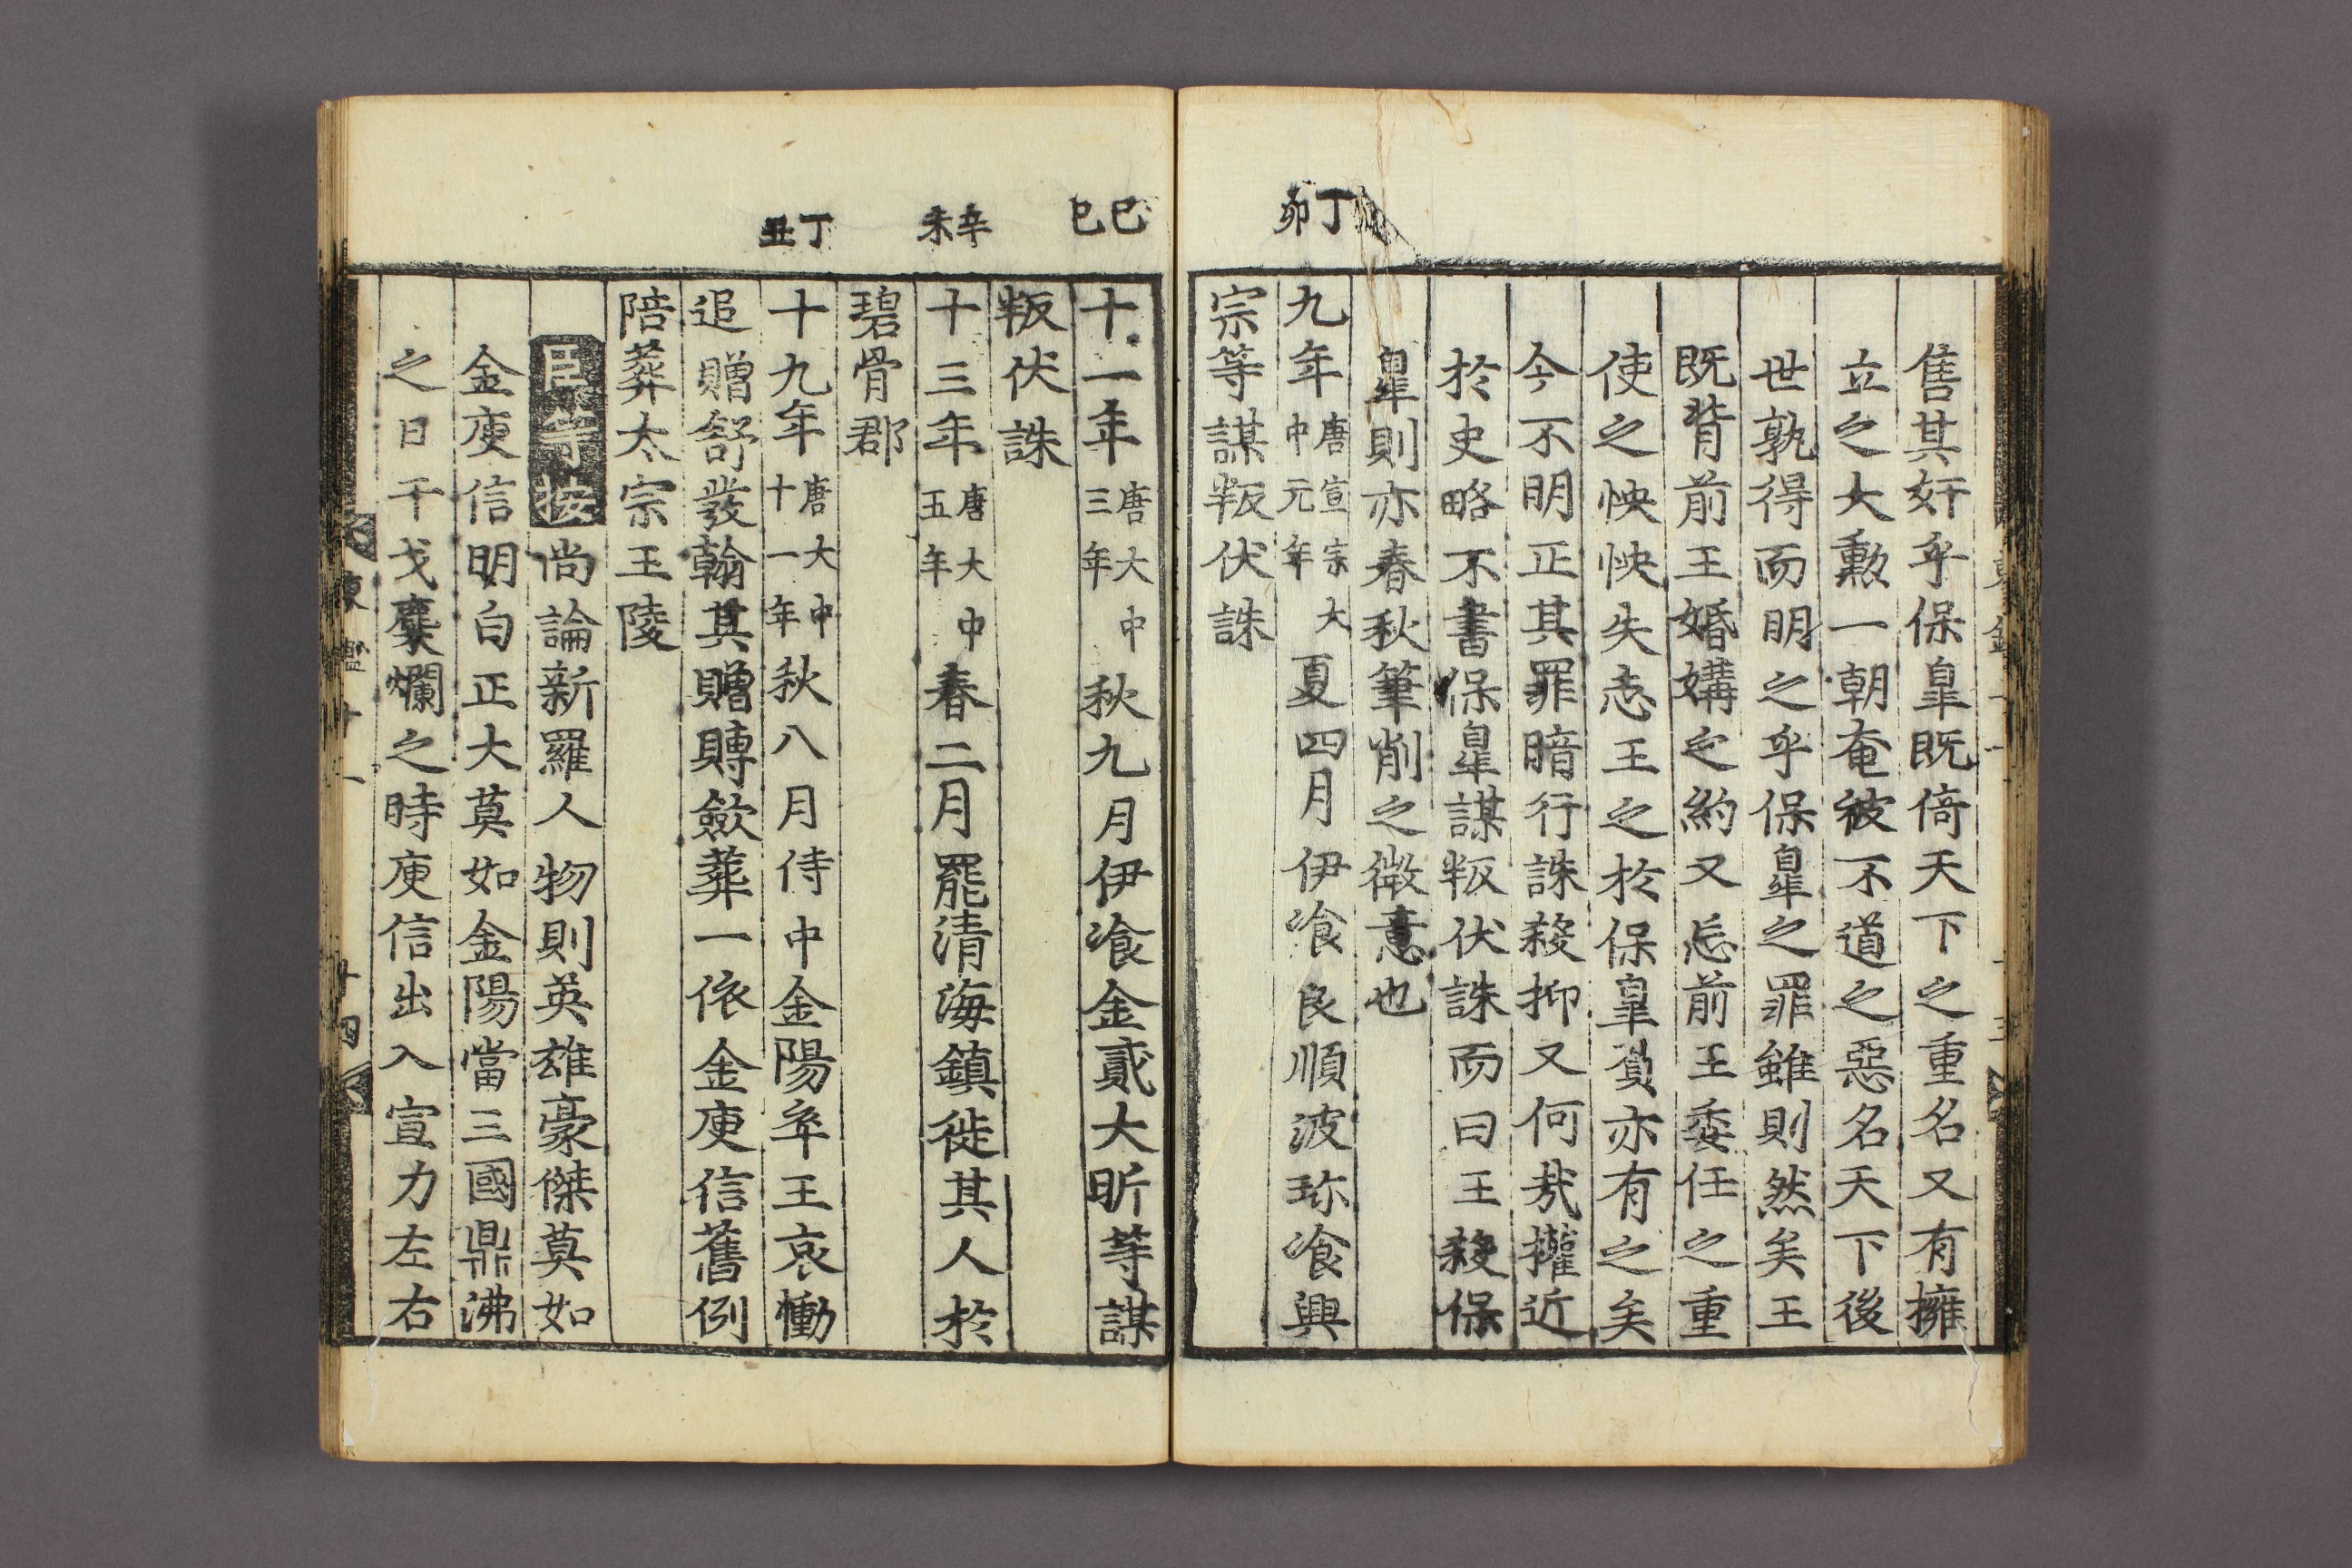 丁卯
售其奸乎保皐既倚天下之重名又有擁
立之大勲一朝奄被不道之惡名天下後
世孰得而明之乎保皐之罪雖則然矣王
既背前王婚媾之約又忘前王委任之重
使之怏怏失志王之於保皐負亦有之矣
今不明正其罪暗行誅殺抑又何㦲權近
於史略不書保皐謀叛伏誅而曰王殺保
皐則亦春秋筆削之微意也
九年唐宣宗大中元年夏四月伊飡良順波珎飡興
宗等謀叛伏誅
己巳
辛未
丁丑
十一年唐大中三年秋九月伊飡金貳大昕等謀
叛伏誅
十三年唐大中五年春二月罷清海鎮徙其人於
碧骨郡
十九年唐大中十一年秋八月侍中金陽卒王哀慟
追贈舒發翰其贈賻歛葬一依金庾信舊例
陪葬太宗王陵
臣等按尚論新羅人物則英雄豪傑莫如
金庾信明白正大莫如金陽當三國鼎沸
之日干戈麋爛之時庾信出入宣力左右